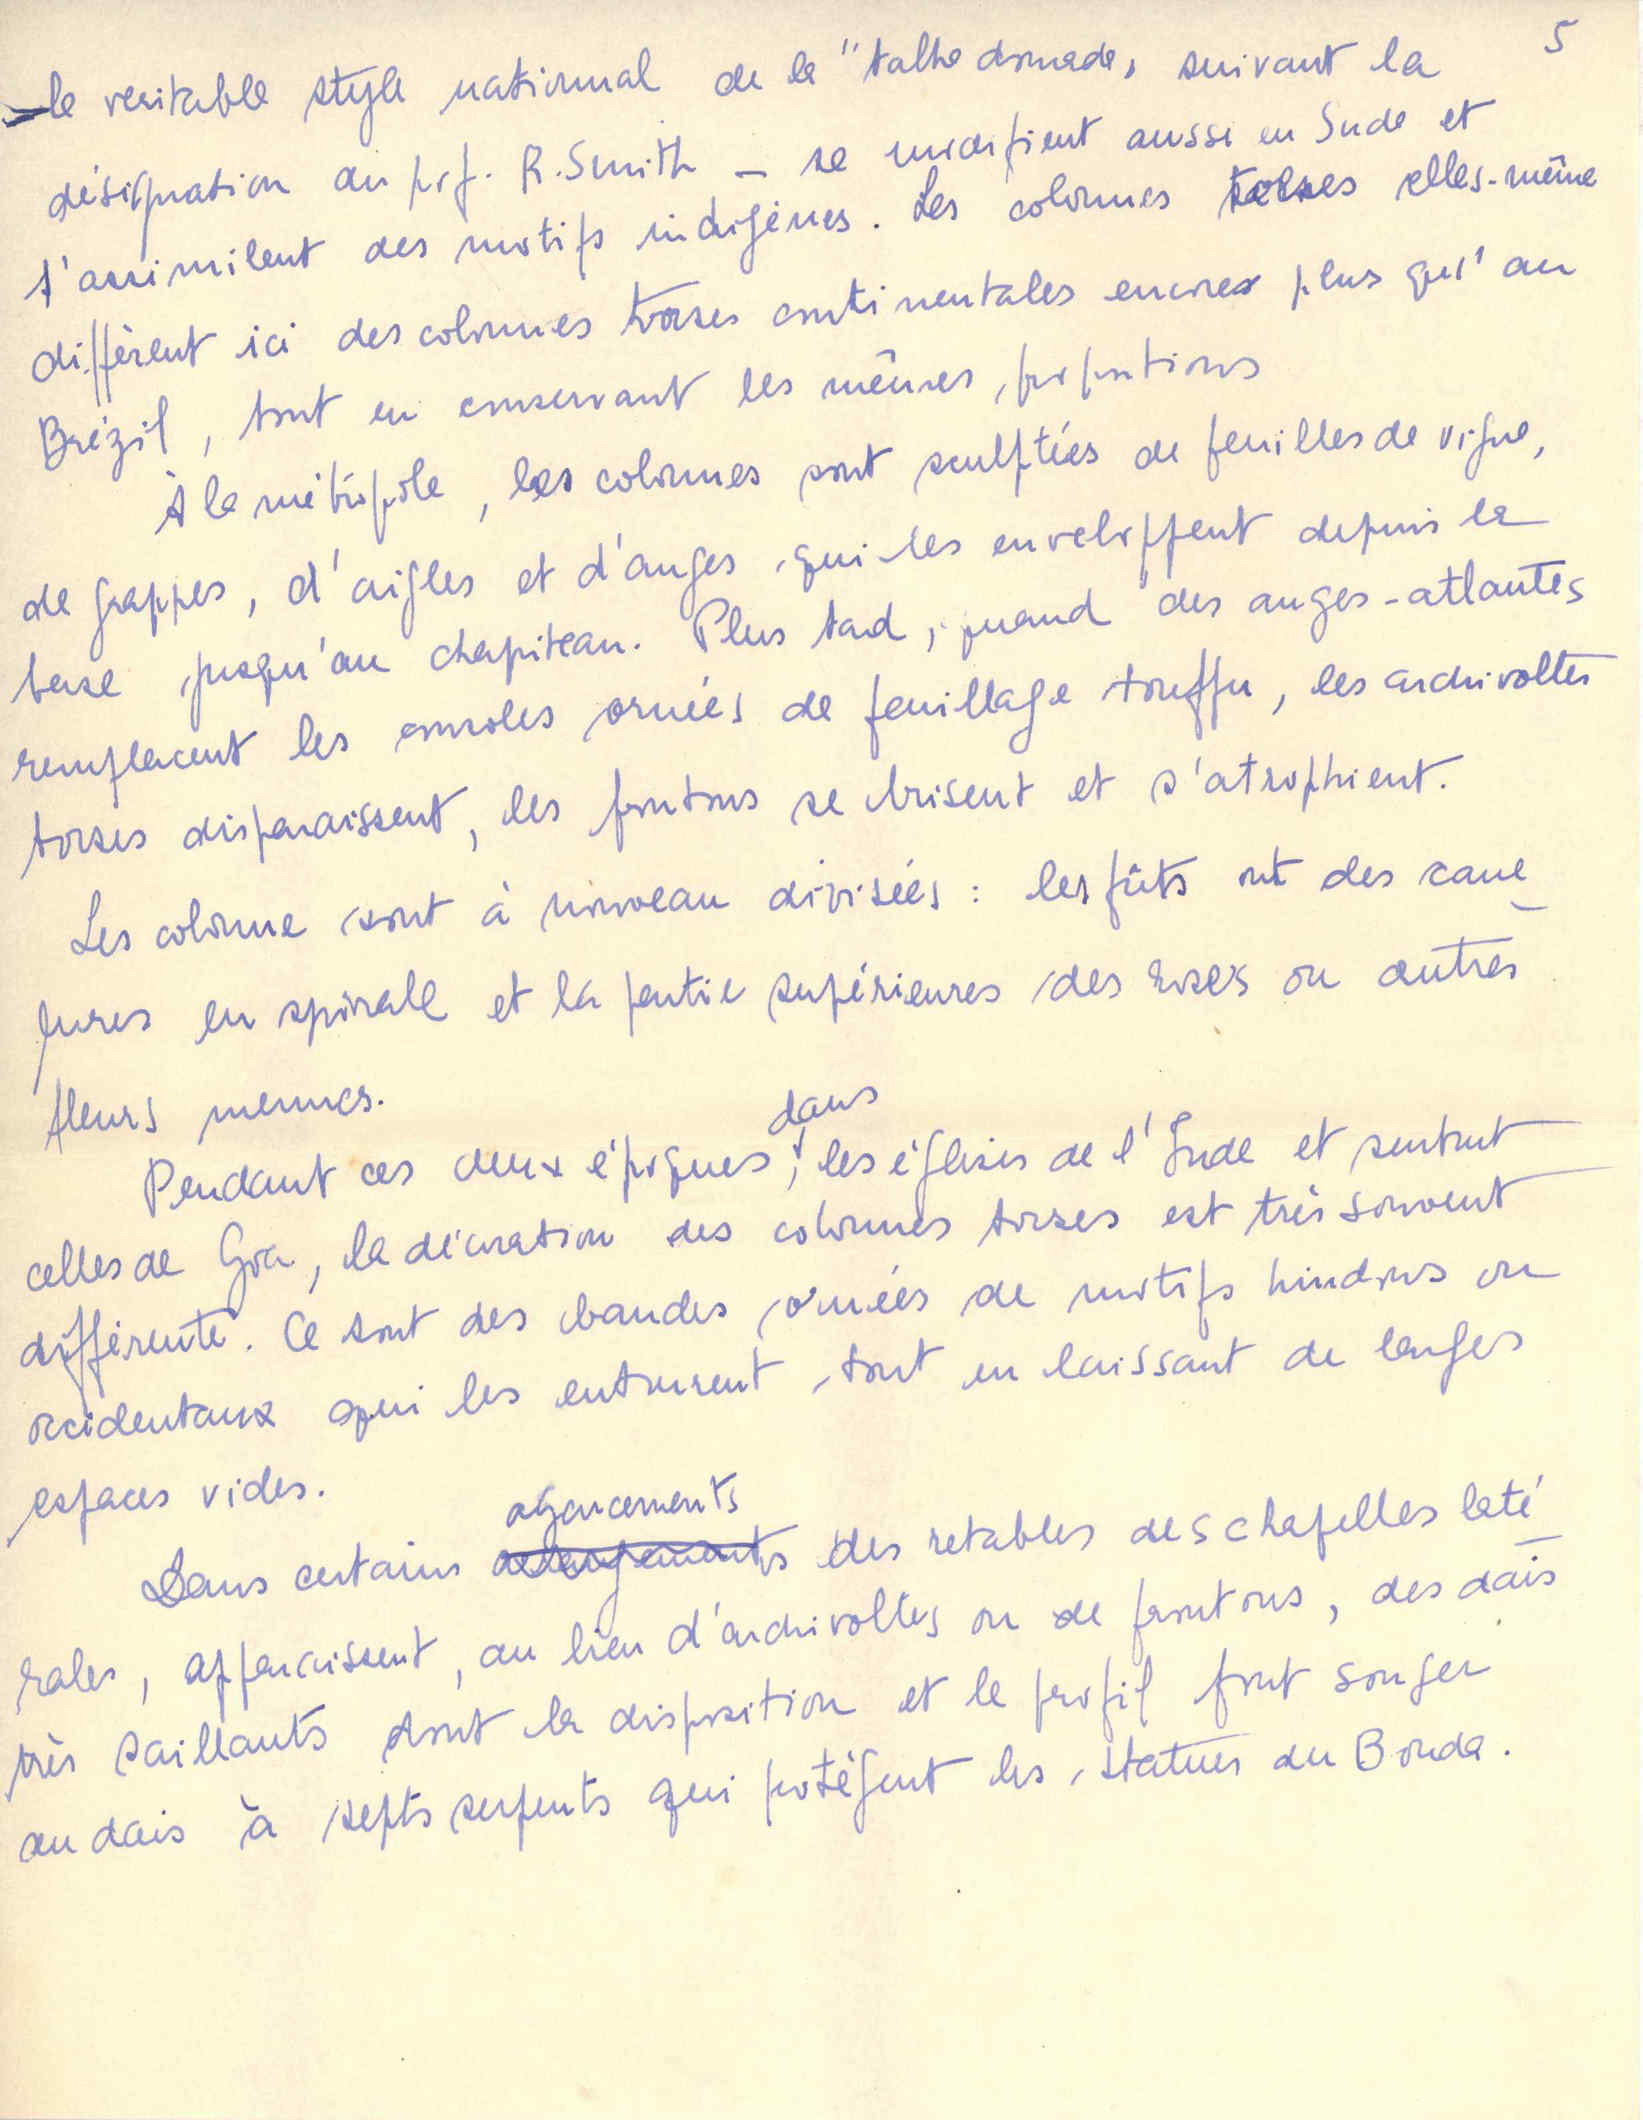 5
— le veritable style national de la "talha dourada, suivant la
désignation du prof. R. Smith — se modifient aussi en Inde et
s'assimilent des motifs indigènes. Les colonnes torses elles-même
diffèrent ici des colonnes torses continentales encore plus qu'au
Brézil, tout en conservant les mêmes proportions
À la métropole, les colonnes sont sculptées de feuilles de vigne,
de grappes, d'aigles et d'anges qui les enveloppent depuis la
base jusqu'au chapiteau. Plus tard, quand des anges-atlantes
remplacent les consoles ornées de feuillage touffu, les archivoltes
torses disparaissent, les frontons se brisent et s'atrophient.
Les colonne sont à nouveau divisées : les fûts ont des cane
lures en spirale et la partie supérieures des roses ou autres
fleurs menues.
dans
Pendant ces deux époques, les églises de l'Inde et surtout
celles de Goa, la décoration des colonnes torses est très souvent
différente. Ce sont des bandes ornées de motifs hindous ou
occidentaux qui les entourent, tout en laissant de larges
espaces vides.
agencements
Dans certains des retables des chapelles laté
rales, apparaissent, au lieu d'archivoltes ou de frontons, des dais
très saillants dont la disposition et le profil font songer
au dais à septs serpents qui protégent les statues du Bouda.